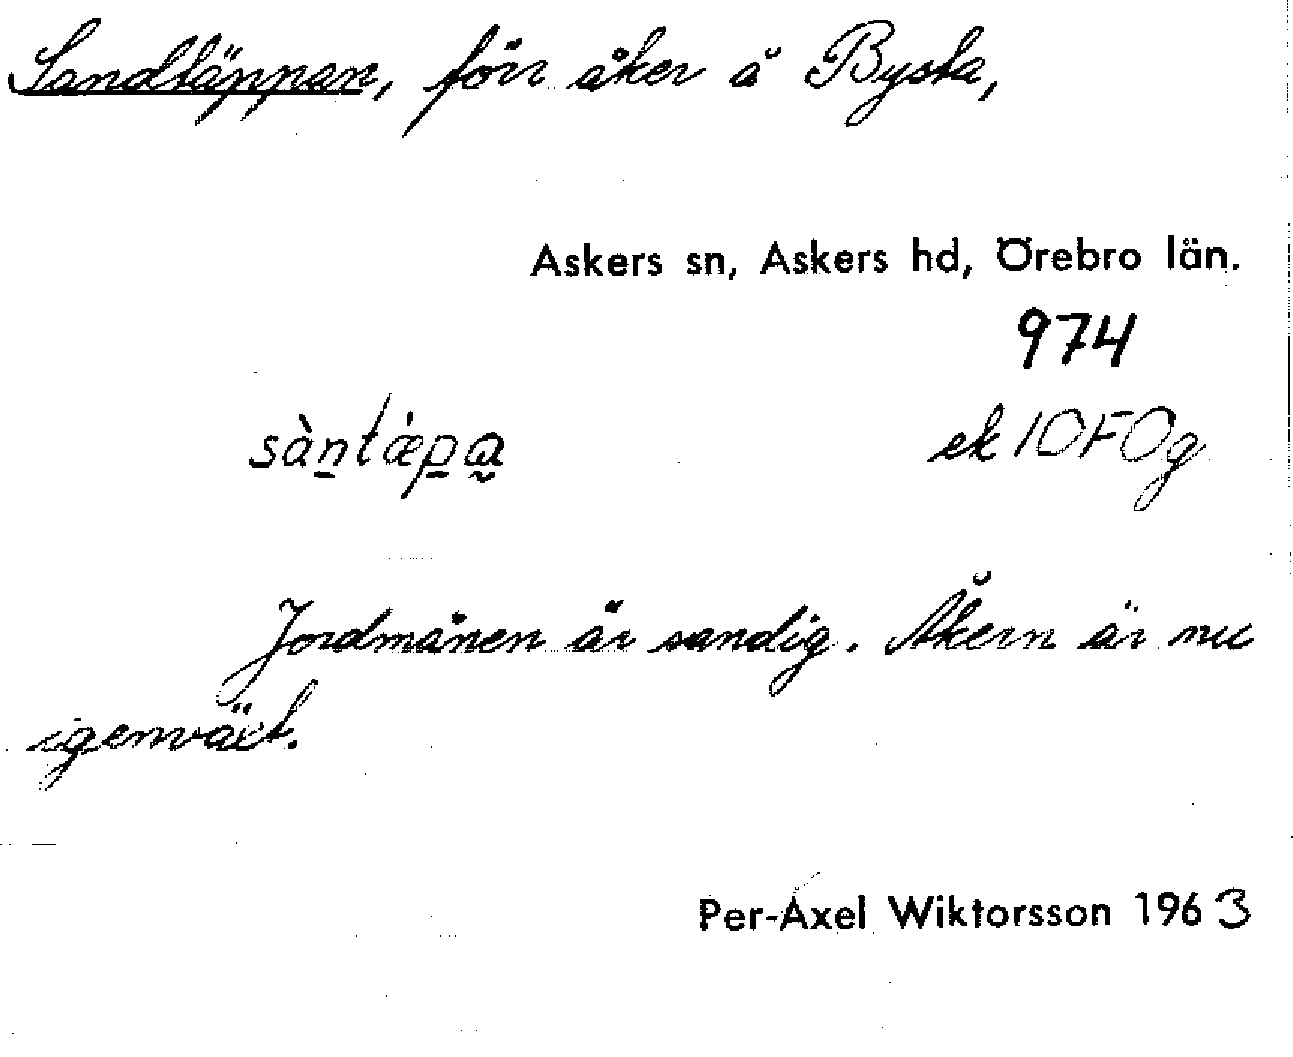 Sandtäppan, förr åker å Bysta,
Askers sn, Askers hd, Örebro län.
974
sàn̲tǽp̲a̰ ek 10F0g
Jordmånen är sandig. Åkern är nu
igenväxt.
Per-Axel Wiktorsson 1963